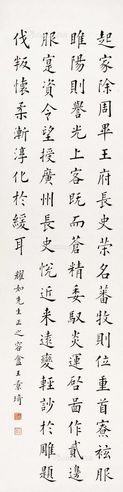 起家除周畢王府長史榮名蕃牧則位重首寮袨服
睢陽則譽光上客既而蒼精委馭炎運啓圖作貳邊
服寔資令望授廣州長史悅近来遠變輕訬於雕題
伐叛懷柔漸淳化於緩耳
耀如先生正之 容盦王景琦